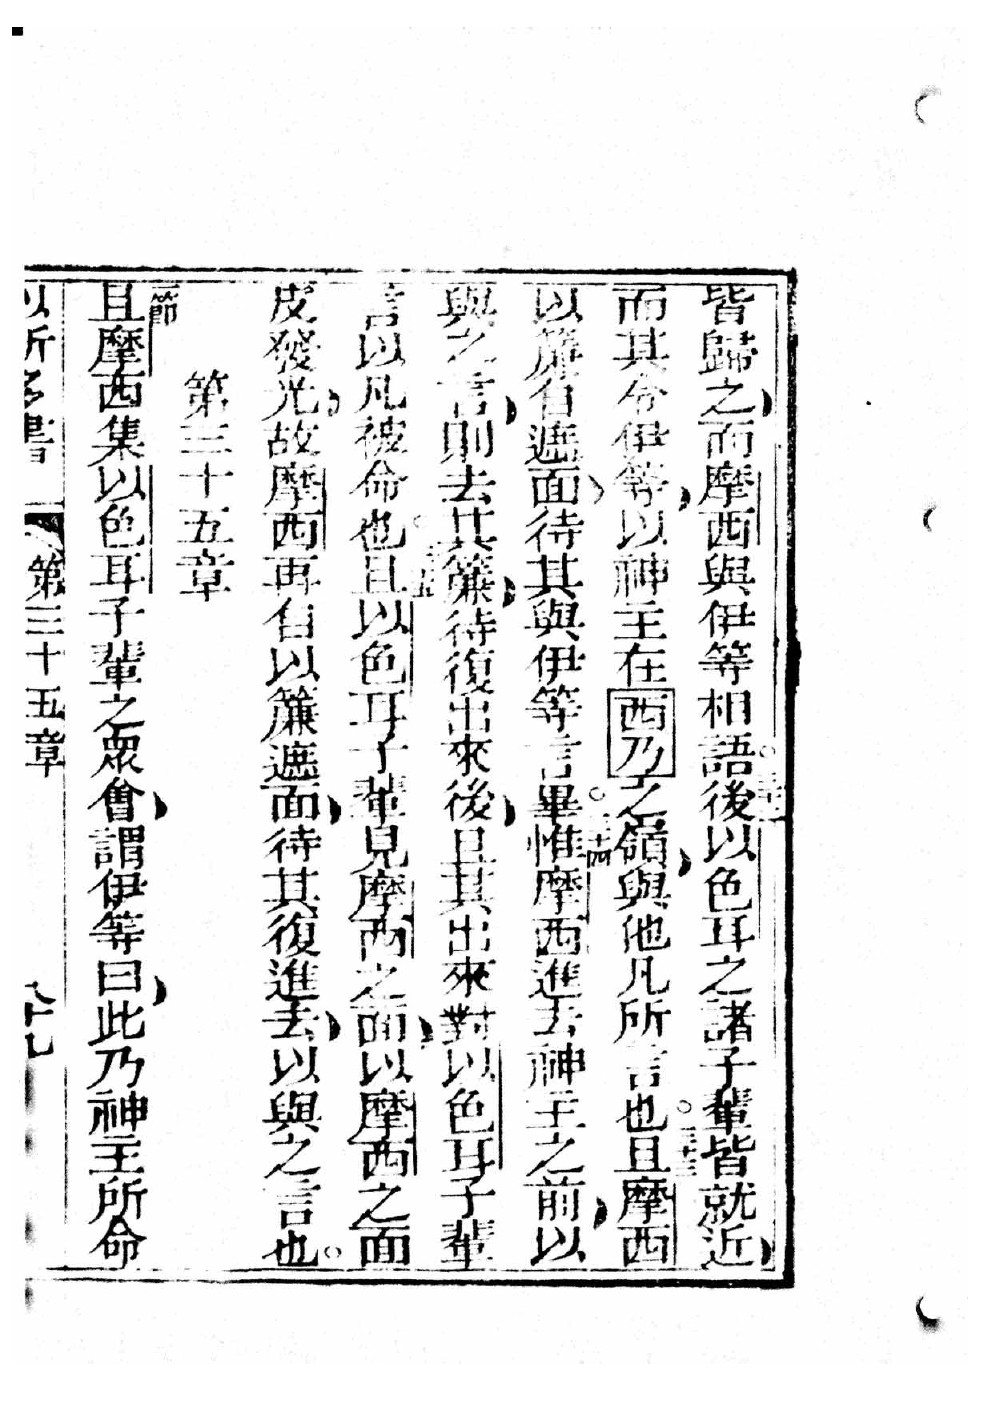 皆歸之而摩西與伊等相語後以色耳之諸子輩皆就近
而其令伊等以神主在西乃之嶺與他凡所言也且摩西
以簾自遮面待其與伊等言畢惟摩西進去神主之前以
與之言則去其簾待復出來後且其出來對以色耳子輩
言以凡被命也且以色耳子輩見摩西之面以摩西之面
皮發光故摩西再自以簾遮面待其復進去以與之言也
第三十五章
一節
且摩西集以色耳子輩之眾會謂伊等曰此乃神主所命
以所多書 第三十五章 八十九